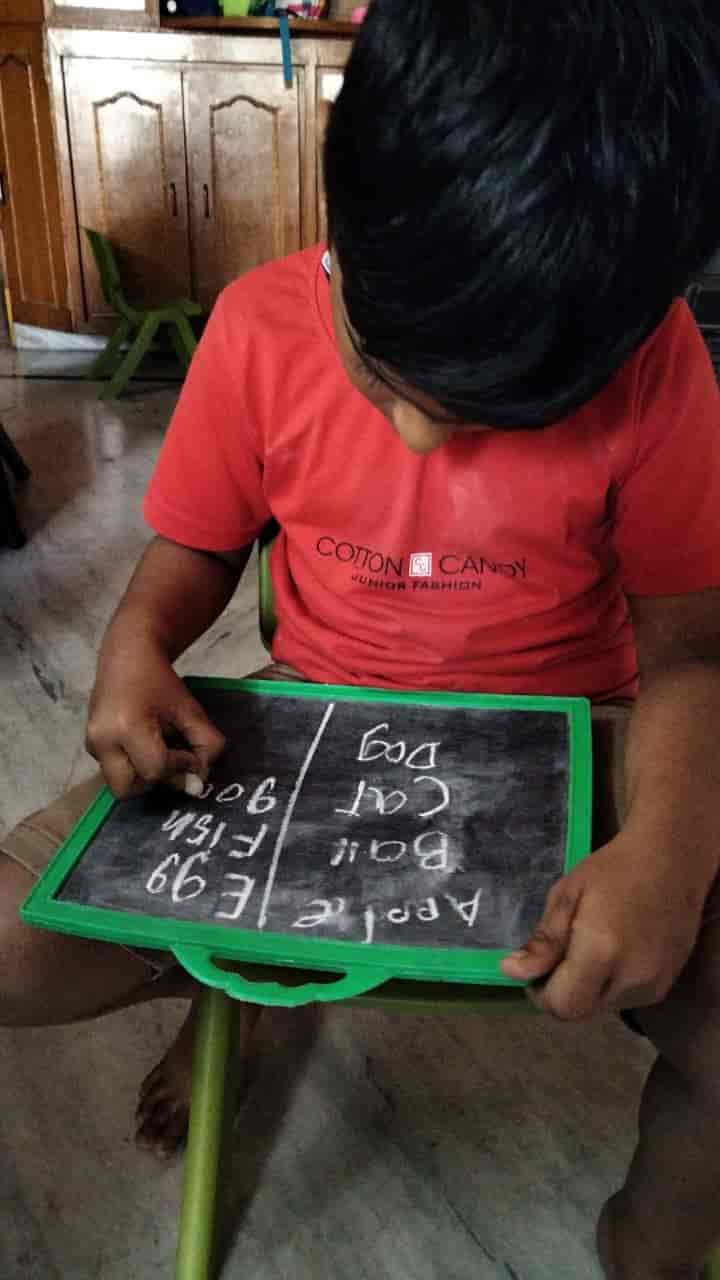 COTTON CC CANDY
JUNIOR FASHION
Apple
Ball
Cat
Dog
Egg
Fish